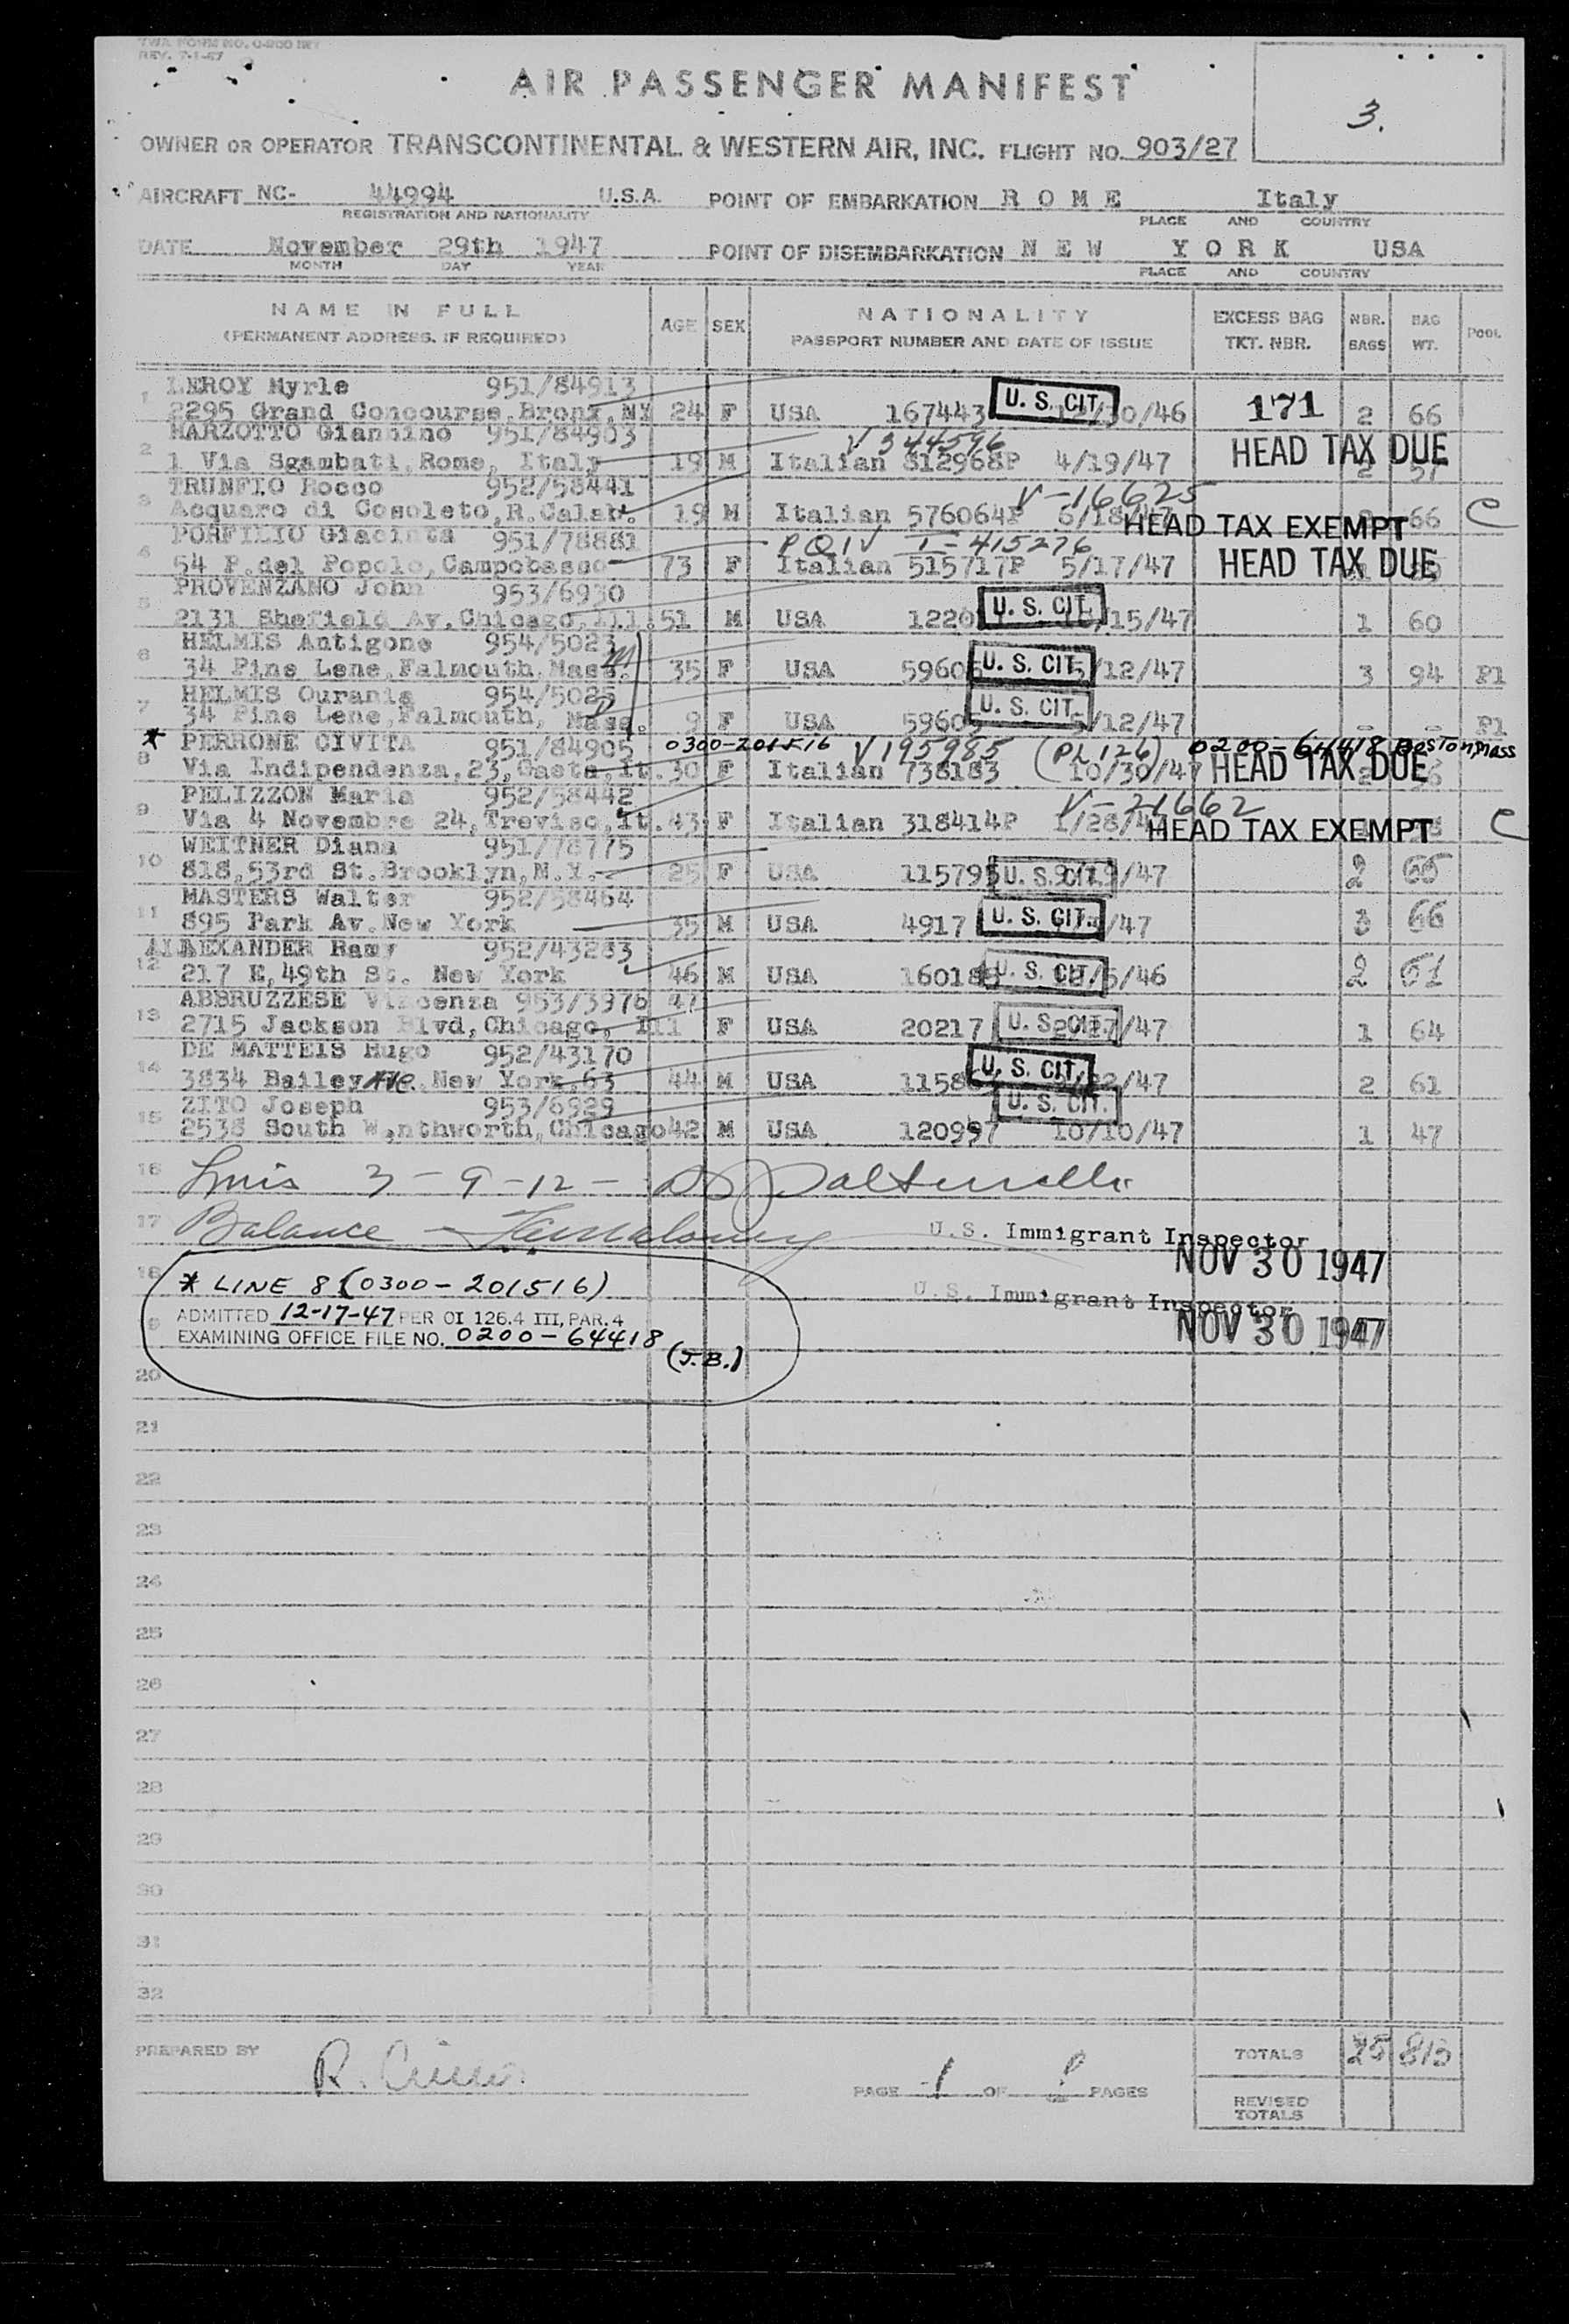 TWA FORM NO. O-200 INT
REV. 7-1-47
AIR PASSENGER MANIFEST
3.
OWNER OR OPERATOR TRANSCONTINENTAL & WESTERN AIR, INC. FLIGHT NO. 903/27
AIRCRAFT NC- 44994 U.S.A. POINT OF EMBARKATION R O M E Italy
REGISTRATION AND NATIONALITY PLACE AND COUNTRY
DATE November 29th 1947 POINT OF DISEMBARKATION N E W Y O R K USA
MONTH DAY YEAR PLACE AND COUNTRY
NAME IN FULL AGE SEX NATIONALITY EXCESS BAG NBR. BAG POOL
(PERMANENT ADDRESS, IF REQUIRED) PASSPORT NUMBER AND DATE OF ISSUE TKT. NBR. BAGS WT.
LEROY Myrle 951/84913 U. S. CIT.
1 2295 Grand Concourse, Bronx, NY 24 F USA 167443 /30/46 171 2 66
MARZOTTO Giannino 951/84903 V 344596 HEAD TAX DUE
2 1 Via Sgambati, Rome, Italy 19 M Italian 812968P 4/19/47 2 57
TRUNFIO Rocco 952/58441 V-16625
3 Acquaro di Cosoleto, R. Calab. 19 M Italian 576064P 6/18/47 HEAD TAX EXEMPT 66 C
PORFILIO Giacinta 951/78881 PQIV I-415276
4 54 P. del Popolo, Campobasso 73 F Italian 515717P 5/17/47 HEAD TAX DUE
PROVENZANO John 953/6930 U. S. CIT.
5 2131 Shefield Av, Chicago, Ill. 51 M USA 1220 /15/47 1 60
HELMIS Antigone 954/5023 M
6 34 Pine Lene, Falmouth, Mass. 35 F USA 5960 U. S. CIT. 5/12/47 3 94 Pl
HELMIS Ourania 954/5025 U. S. CIT.
7 34 Pine Lene, Falmouth, Mass. 9 F USA 5960 5/12/47 - - Pl
* PERRONE CIVITA 951/84905 0300-201516 V195985 (PL 126) 0200-64418 Boston, Mass
8 Via Indipendenza, 23, Gaeta, It. 30 F Italian 738183 10/30/47 HEAD TAX DUE 2 56
PELIZZON Maria 952/58442 V-21662
9 Via 4 Novembre 24, Treviso, It. 43 F Italian 318414P 1/28/47 HEAD TAX EXEMPT C
WEITNER Diana 951/78775
10 818, 53rd St. Brooklyn, N.Y. 25 F USA 115795 U. S. CIT. 9/19/47 2 66
MASTERS Walter 952/58464
11 895 Park Av. New York 35 M USA 4917 U. S. CIT. /47 3 66
ALEXANDER Ramy 952/43283
12 217 E, 49th St. New York 46 M USA 16018 U. S. CIT. /5/46 2 61
ABBRUZZESE Vincenza 953/3976 47
13 2715 Jackson Blvd, Chicago, Ill F USA 20217 U. S. CIT. 2/27/47 1 64
DE MATTEIS Hugo 952/43170 U. S. CIT.
14 3834 Bailey Ave. New York, 63 44 M USA 1158 /22/47 2 61
ZITO Joseph 953/6929 U. S. CIT.
15 2538 South Wenthworth, Chicago 42 M USA 120997 10/10/47 1 47
16 3-9-12-
17 Balance - U.S. Immigrant Inspector
NOV 30 1947
18 * LINE 8 (0300-201516) U.S. Immigrant Inspector
ADMITTED 12-17-47 PER OI 126.4 III, PAR. 4
19 EXAMINING OFFICE FILE NO. 0200-64418 (J.B.) NOV 30 1947
20
21
22
23
24
25
26
27
28
29
30
31
32
PREPARED BY TOTALS 25 813
PAGE 1 OF PAGES
REVISED TOTALS